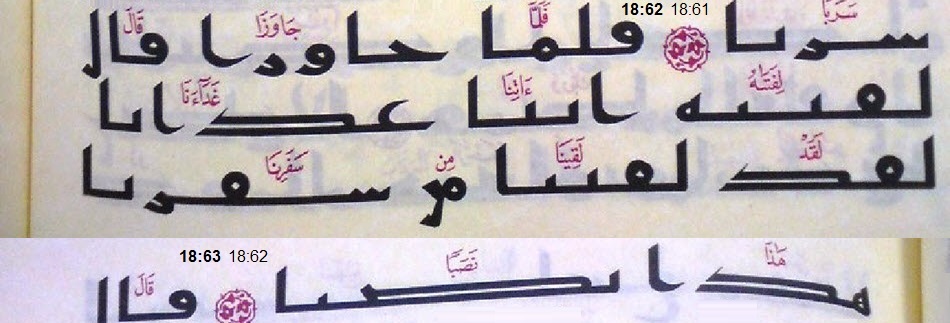 18:62 18:61
سَرَبًا فَلَمَّا جَاوَزَا قَالَ
سربا فلما جاوزا قال
لِفَتَىٰهُ ءَاتِنَا غَدَآءَنَا
لفتيه اتنا غدانا
لَقَدْ لَقِينَا مِن سَفَرِنَا
لقد لقينا من سفرنا
18:63 18:62
هَٰذَا نَصَبًا قَالَ
هذا نصبا قال